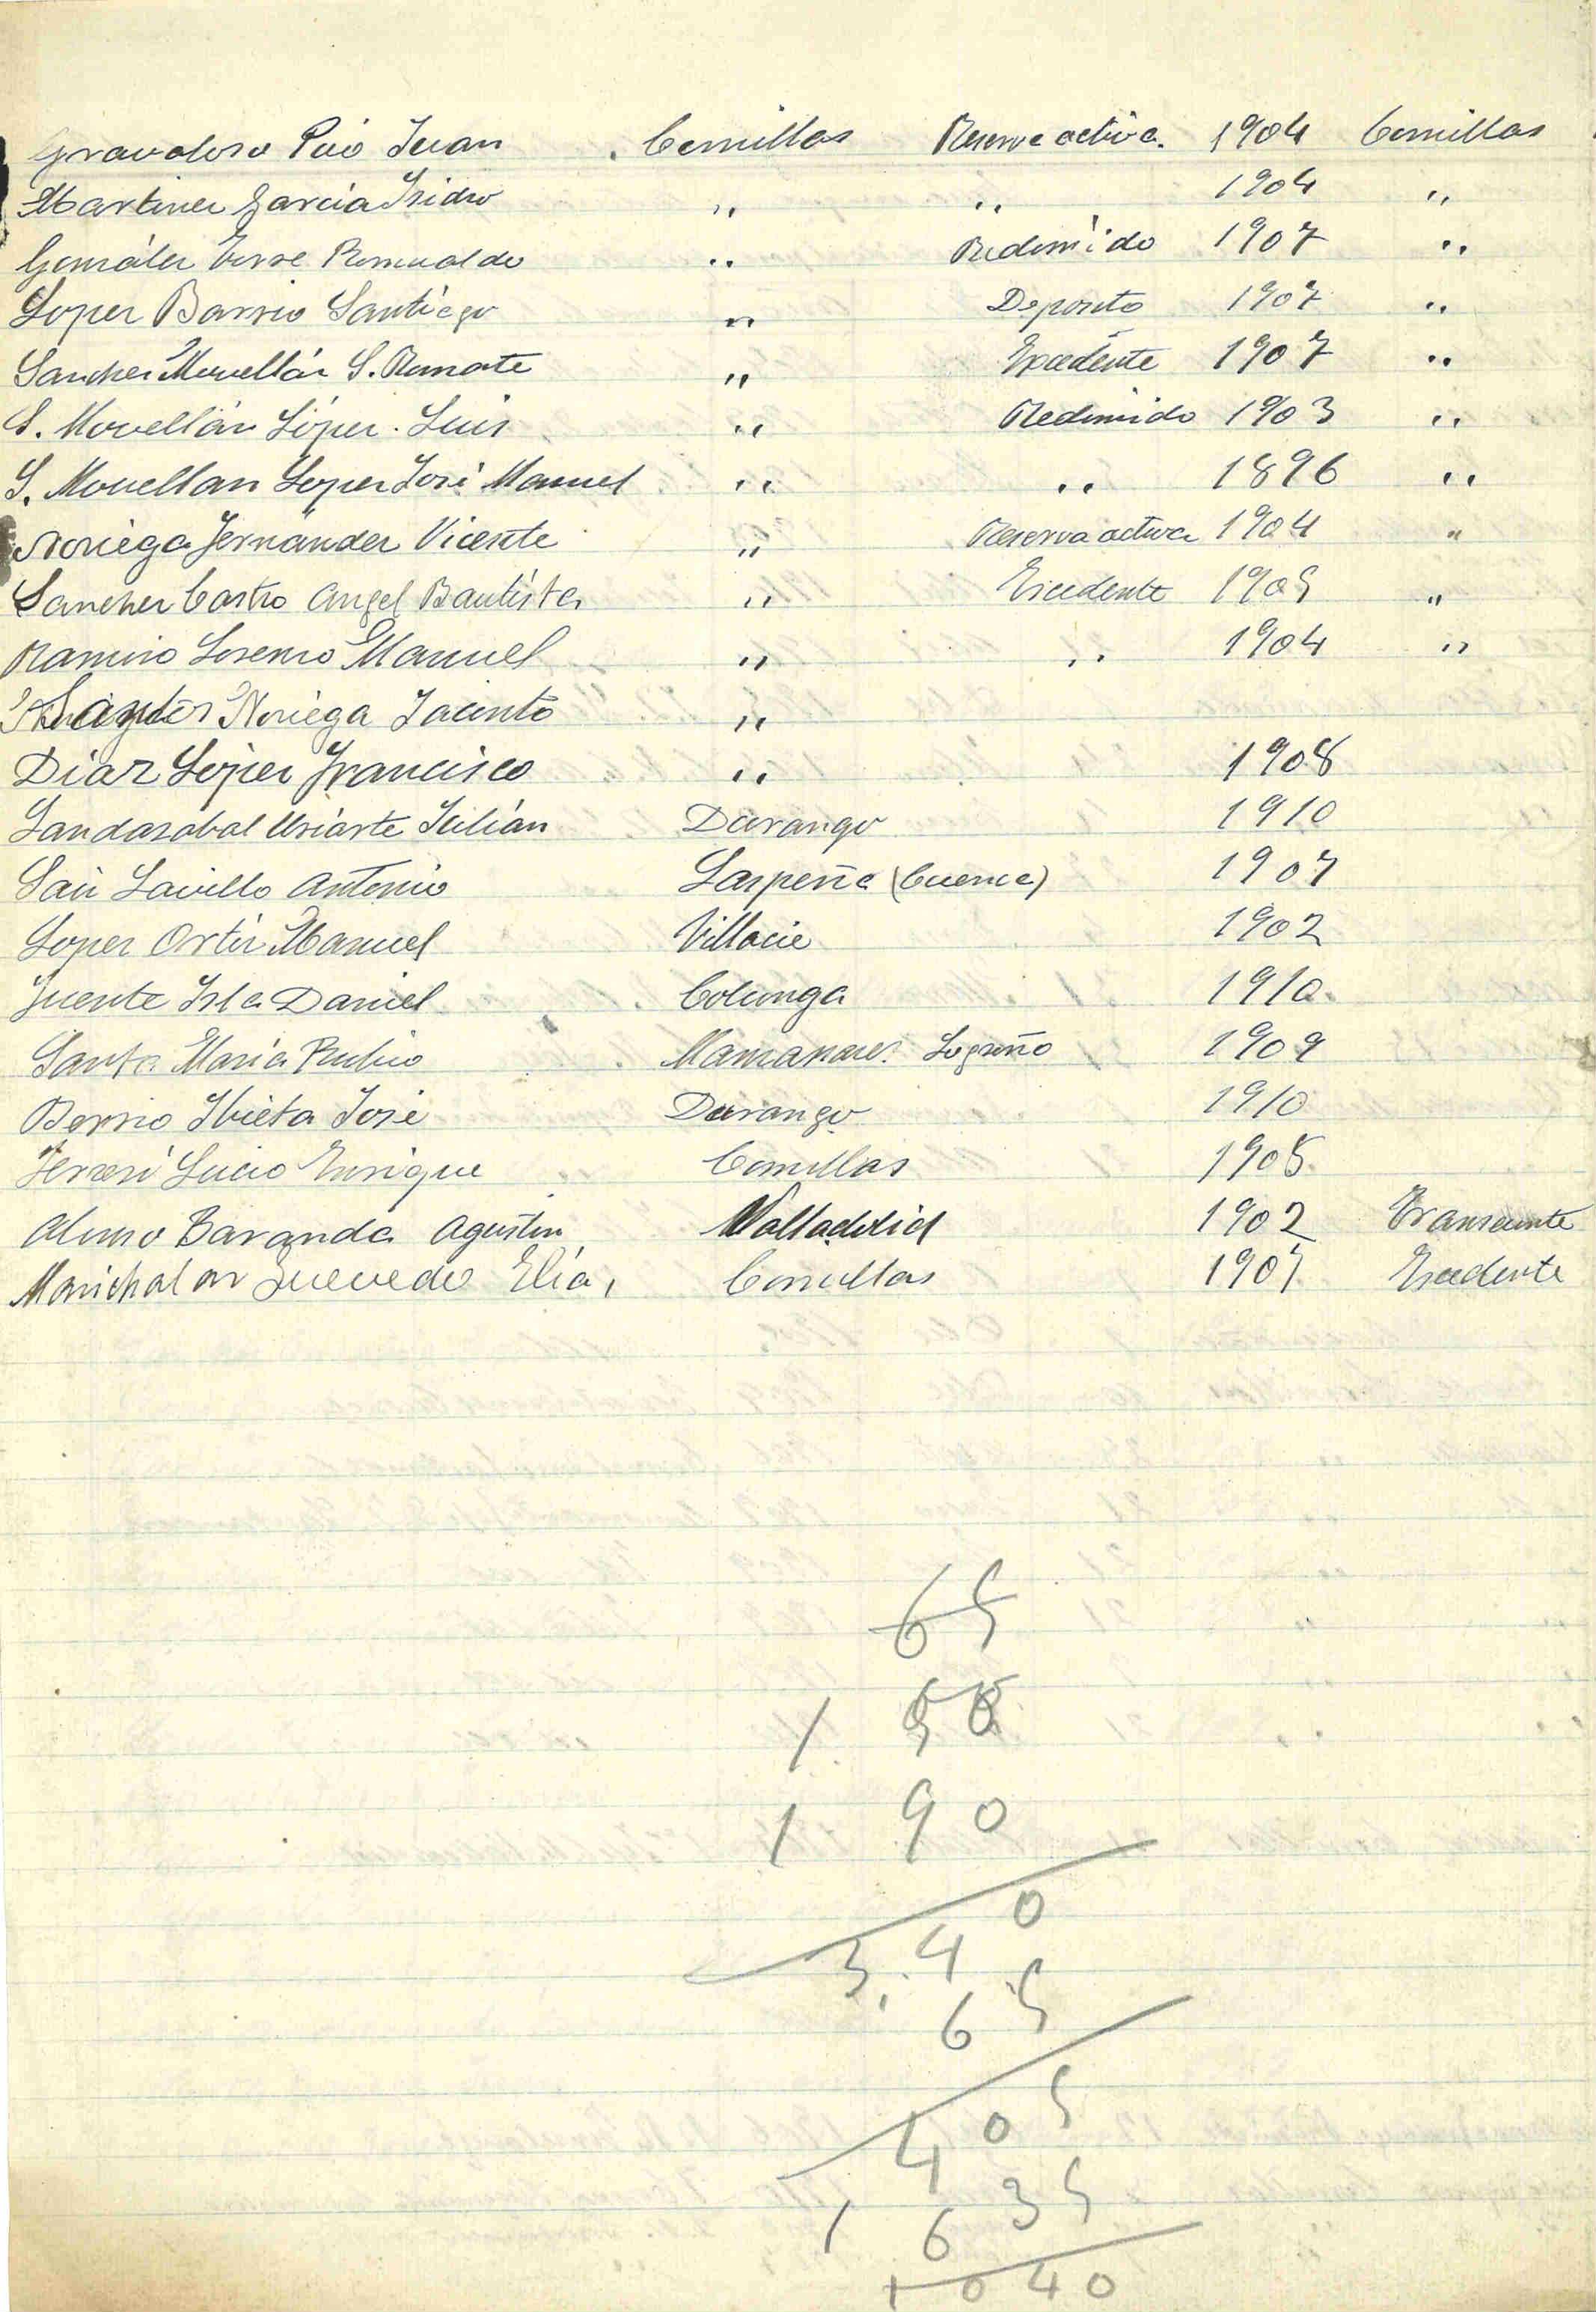 Gravalosa Pió Juan Comillas Reserva activa. 1904 Comillas
Martinez Garcia Isidro " " 1904 "
González Torre Romualdo " Redimido 1907 "
Lopez Barrio Santiago " Deposito 1907 "
Sanchez Movellán S. Romate " Excedente 1907 "
S. Movellán López. Luis " Redimido 1903 "
S. Movellan Lopez José Manuel " " 1896 "
Noriega Fernández Vicente " Reserva activa 1904 "
Sanchez Castro Angel Bautista " Excedente 1905 "
Ramiro Lorenzo Manuel " " 1904 "
Noriega Jacinto "
Diaz López Francisco " 1908
Landazabal Uriarte Julián Durango 1910
Antonio (Cuenca) 1907
Lopez Ortiz Manuel Villacie 1902
Fuente Isla Daniel Colunga 1910
Santa Maria Rubio Manzanares Logroño 1909
Berrio Ibieta José Durango 1910
Lucio Enrique Comillas 1905
Alonso Baranda Agustin Valladolid 1902 Transeunte
Marichalar Quevedo Elias Comillas 1907 Excedente
65
1
1 90
3.40
65
405
1 635
1040